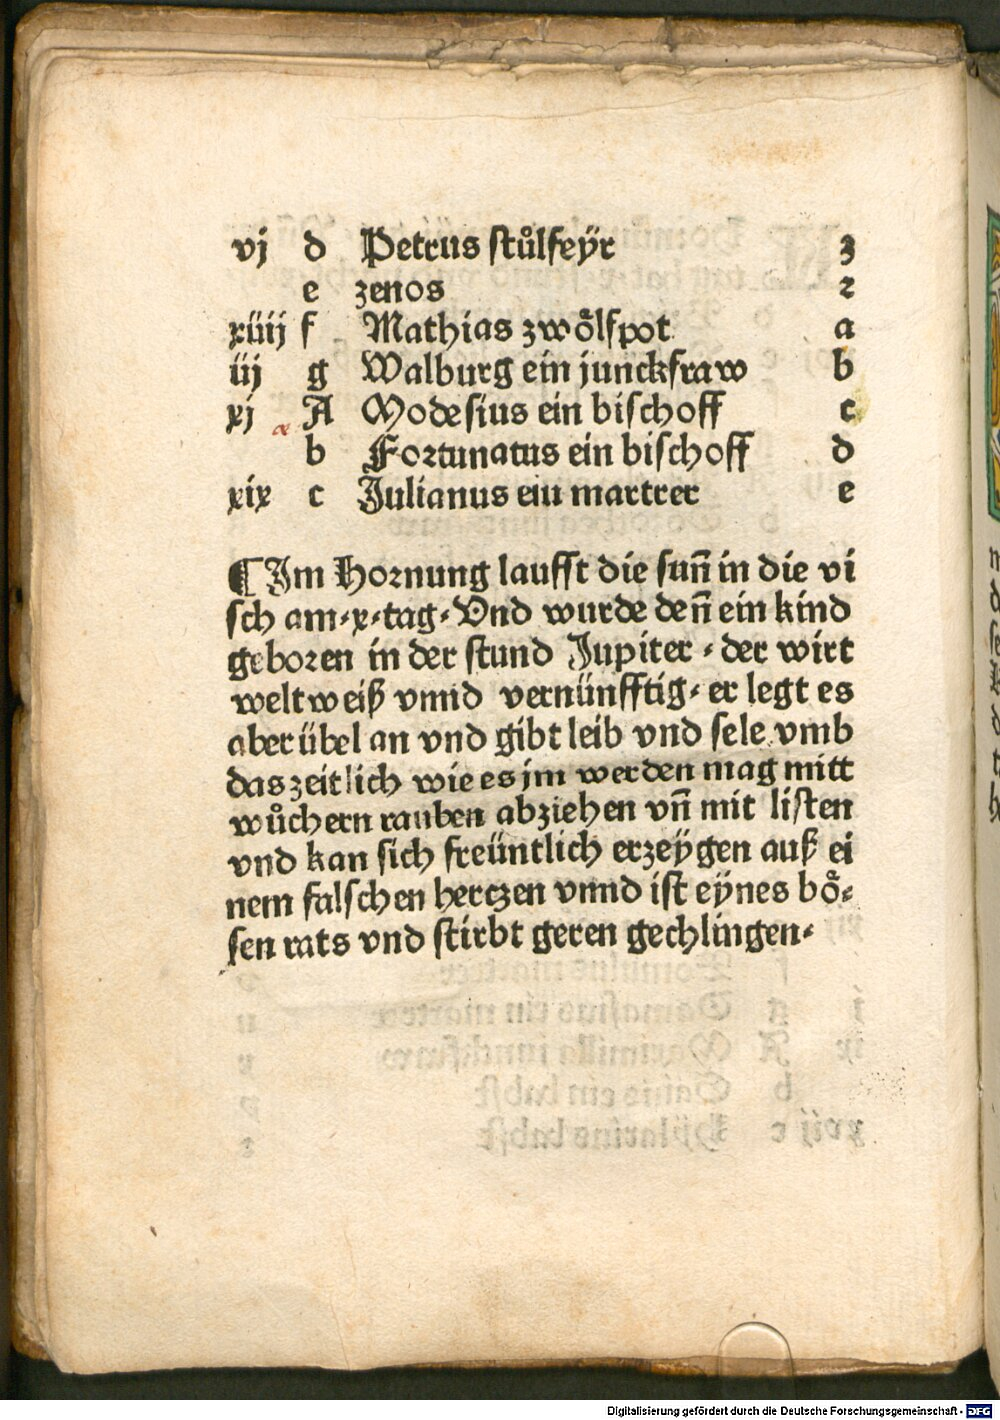 vj d Petrus stůlfeÿr ʒ
e zenos ꝛ
xiiij f Mathias zwoͤlfpot a
iij g Walburg ein junckfraw b
xj A Modesius ein bischoff c
b Fortunatus ein bischoff d
xix c Julianus ein martrer e
¶ Im Hornung laufft die sun̄ in die vi
sch am·x·tag·Vnd wurde den̄ ein kind
geboren in der stund Jupiter · der wirt
weltweiß vnnd vernünfftig· er legt es
aber übel an vnd gibt leib vnd sele vmb
das zeitlich wie es jm werden mag mitt
wůchern rauben abziehen vn̄ mit listen
vnd kan sich freüntlich erzeÿgen auß ei
nem falschen hertzen vnnd ist eÿnes boͤ⸗
sen rats vnd stirbt geren gechlingen·
Digitalisierung gefördert durch die Deutsche Forschungsgemeinschaft - DFG